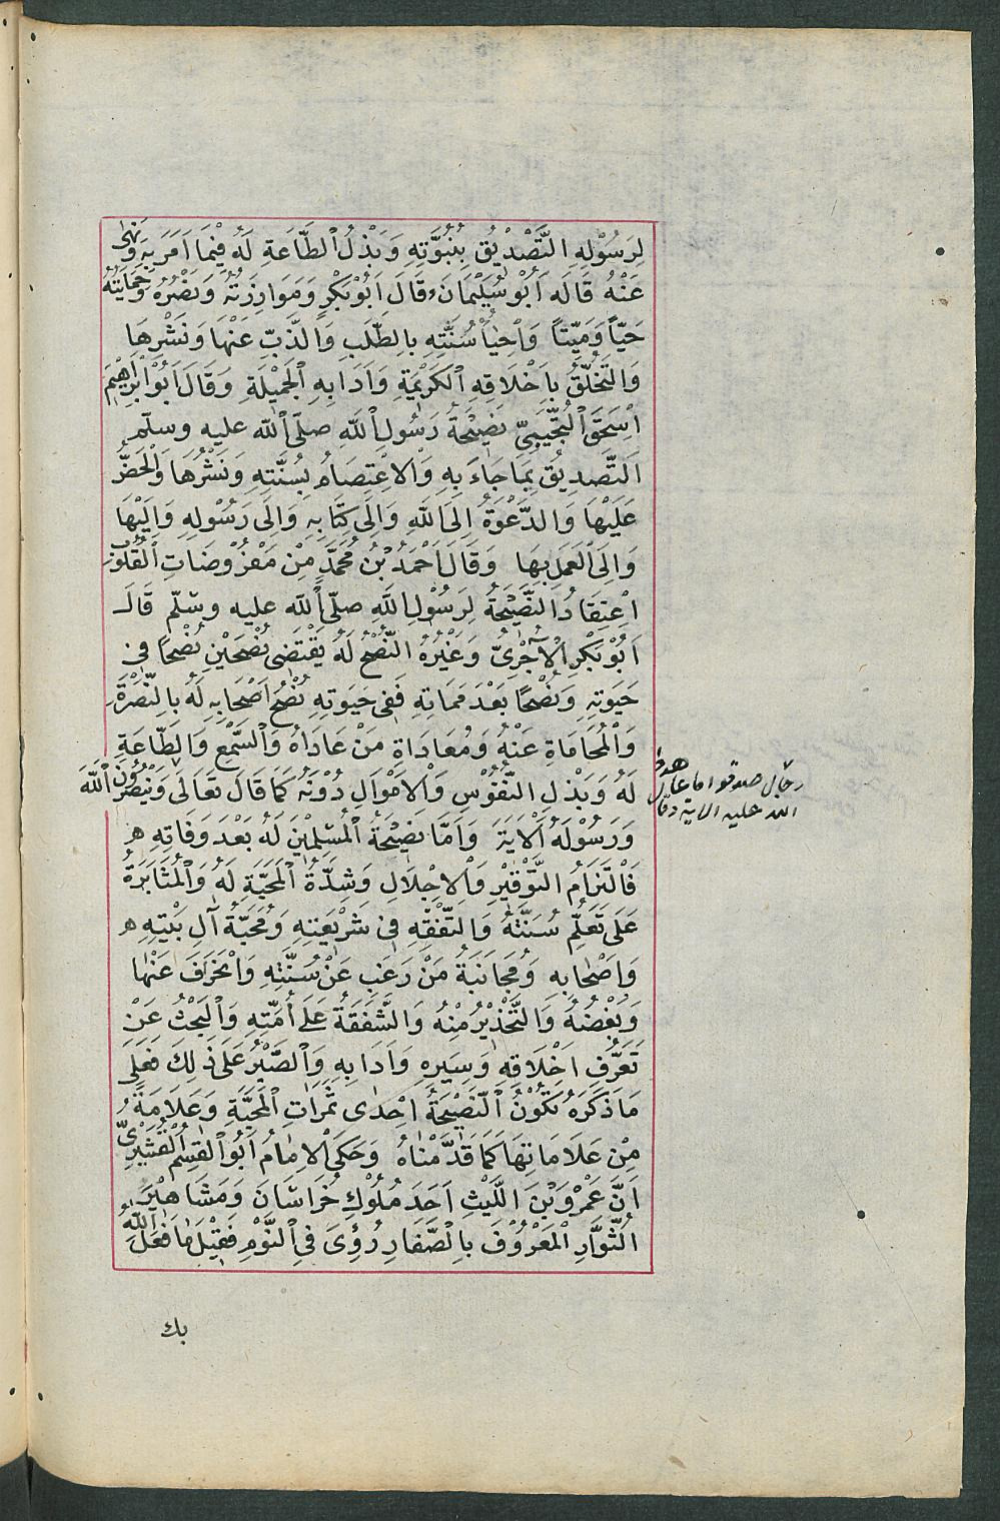 لِرَسُوْلِهِ التَّصْدِيْقُ بِنُبُوَّتِهِ وَبَذْلُ الطَّاعَةِ لَهُ فِيْمَا اَمَرَ بِهِ وَنَهٰى
عَنْهُ قَالَهُ اَبُوْ سُلَيْمَانَ وَقَالَ اَبُوْ بَكْرٍ وَمَوَازِرَتُهُ وَنَصْرُهُ وَحِمَايَتُهُ
حَيّاً وَمَيِّتاً وَاِحْيَاُ سُنَّتِهِ بِالطَّلَبِ وَالذَّبِّ عَنْهَا وَنَشْرِهَا
وَالتَّخَلُّقُ بِاَخْلَاقِهِ الْكَرِيْمَةِ وَاٰدَابِهِ الْجَمِيْلَةِ وَقَالَ اَبُوْ اِبْرَاهِيْمَ
اِسْحٰقَ التُّجِيْبِيّ نَصِيْحَةُ رَسُوْلِ اللّٰهِ صلّى الله عليه وسلّم
اَلتَّصْدِيْقُ بِمَا جَاءَ بِهِ وَالْاِعْتِصَامُ بِسُنَّتِهِ وَنَشْرُهَا وَالْحَضُّ
عَلَيْهَا وَالدَّعْوَةُ اِلَى اللّٰهِ وَاِلَى كِتَابِهِ وَاِلَى رَسُوْلِهِ وَاِلَيْهَا
وَاِلَى الْعَمَلِ بِهَا وَقَالَ اَحْمَدُ بْنُ مُحَمَّدٍ مِنْ مَفْرُوْضَاتِ الْقُلُوْبِ
اِعْتِقَادُ النَّصِيْحَةُ لِرَسُوْلِ اللّٰهِ صلّى الله عليه وسلّم قَالَ
اَبُوْ بَكْرٍ الْاٰجُرِّىُّ وَغَيْرُهُ النُّصْحُ لَهُ يَقْتَضِى نُصْحَيْنِ نُصْحًا فِى
حَيٰوتِهِ وَنُصْحًا بَعْدَ مَمَاتِهِ فَفِى حَيٰوتِهِ نُصْحُ اَصْحَابِهِ لَهُ بِالنُّصْرَةِ
وَالْمُحَامَاةِ عَنْهُ وَمُعَادَاةِ مَنْ عَادَاهُ وَالسَّمْعِ وَالطَّاعَةِ
لَهُ وَبَذْلِ النُّفُوْسِ وَالْاَمْوَالِ دُوْنَهُ كَمَا قَالَ تَعَالَى وَيَنْصُرُوْنَ اللّٰهَ
رجال صدقوا ما عاهدوا
الله عليه الاية وقال
وَرَسُوْلَهُ اَلْاٰيَةَ وَاَمَّا نَصِيْحَةُ الْمُسْلِمِيْنَ لَهُ بَعْدَ وَفَاتِهِ
فَالْتِزَامُ التَّوْقِيْرِ وَالْاِجْلَالِ وَشِدَّةُ الْمَحَبَّةِ لَهُ وَالْمُثَابَرَةُ
عَلَى تَعَلُّمِ سُنَّتِهُ وَالتَّفَقُّهِ فِى شَرِيْعَتِهِ وَمُحَبَّةُ اٰلِ بَيْتِهِ
وَاَصْحَابِهِ وَمُجَانَبَةُ مَنْ رَغِبَ عَنْ سُنَّتِهِ وَانْحَرَفَ عَنْهَا
وَبُغْضُهُ وَالتَّحْذِيْرُ مِنْهُ وَالشَّفَقَةُ عَلَى اُمَّتِهِ وَالْبَحْثُ عَنْ
تَعَرُّفِ اَخْلَاقِهِ وَسِيَرِهِ وَاٰدَابِهِ وَالصَّبْرُ عَلَى ذٰلِكَ فَعَلَى
مَا ذَكَرَهُ تَكُوْنُ النَّصِيْحَةُ اِحْدٰى ثَمَرَاتِ الْمَحَبَّةِ وَعَلَامَةً
مِنْ عَلَامَاتِهَا كَمَا قَدَّمْنَاهُ وَحَكَى الْاِمَامُ اَبُو الْقٰسِمِ الْقُشَيْرِيُّ
اَنَّ عَمْرَو بْنَ اللَّيْثِ اَحَدَ مُلُوْكِ خُرَاسَانَ وَمَشَاهِيْرَ
الثُّوَّارِ الْمَعْرُوْفَ بِالصَّفَارِ رُؤِىَ فِى النَّوْمِ فَقِيْلَ مَا فَعَلَ اللّٰهُ
بك